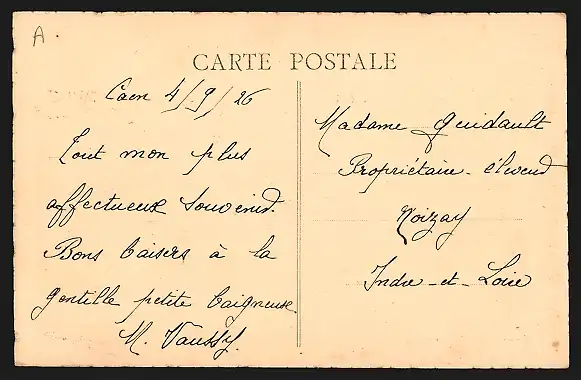 A.
CARTE POSTALE
Caen 4/9/26
Tout mon plus
affectueux souvenir.
Bons baisers à la
gentille petite baigneuse
M. Vaussy.
Madame Guidault
Propriétaire - éleveur
Noizay
Indre-et-Loire